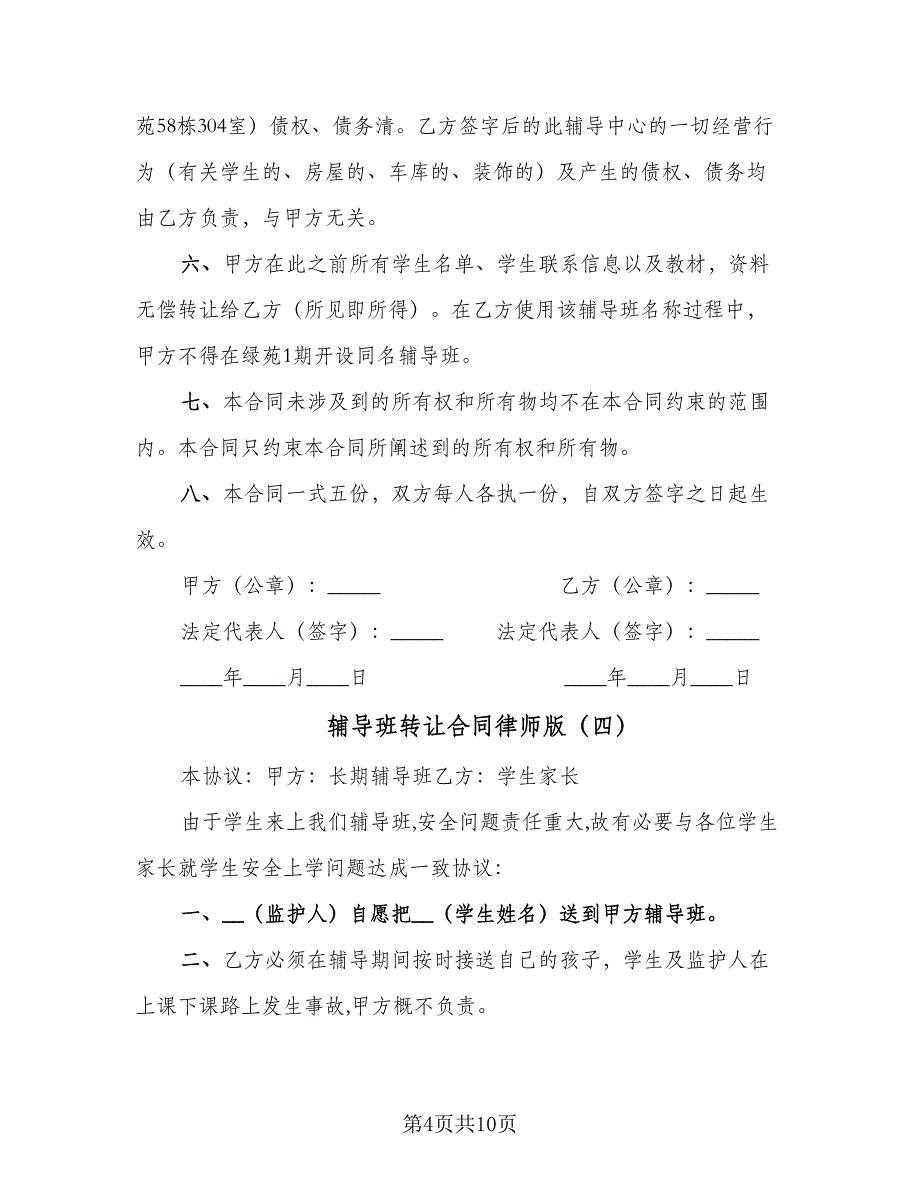 苑58栋304室）债权、债务清。乙方签字后的此辅导中心的一切经营行
为（有关学生的、房屋的、车库的、装饰的）及产生的债权、债务均
由乙方负责，与甲方无关。
六、甲方在此之前所有学生名单、学生联系信息以及教材，资料
无偿转让给乙方（所见即所得）。在乙方使用该辅导班名称过程中，
甲方不得在绿苑1期开设同名辅导班。
七、本合同未涉及到的所有权和所有物均不在本合同约束的范围
内。本合同只约束本合同所阐述到的所有权和所有物。
八、本合同一式五份，双方每人各执一份，自双方签字之日起生
效。
甲方（公章）：_____ 乙方（公章）：_____
法定代表人（签字）：_____ 法定代表人（签字）：_____
____年____月____日 ____年____月____日
辅导班转让合同律师版（四）
本协议：甲方：长期辅导班乙方：学生家长
由于学生来上我们辅导班,安全问题责任重大,故有必要与各位学生
家长就学生安全上学问题达成一致协议：
一、__（监护人）自愿把__（学生姓名）送到甲方辅导班。
二、乙方必须在辅导期间按时接送自己的孩子，学生及监护人在
上课下课路上发生事故,甲方概不负责。
第4页共10页